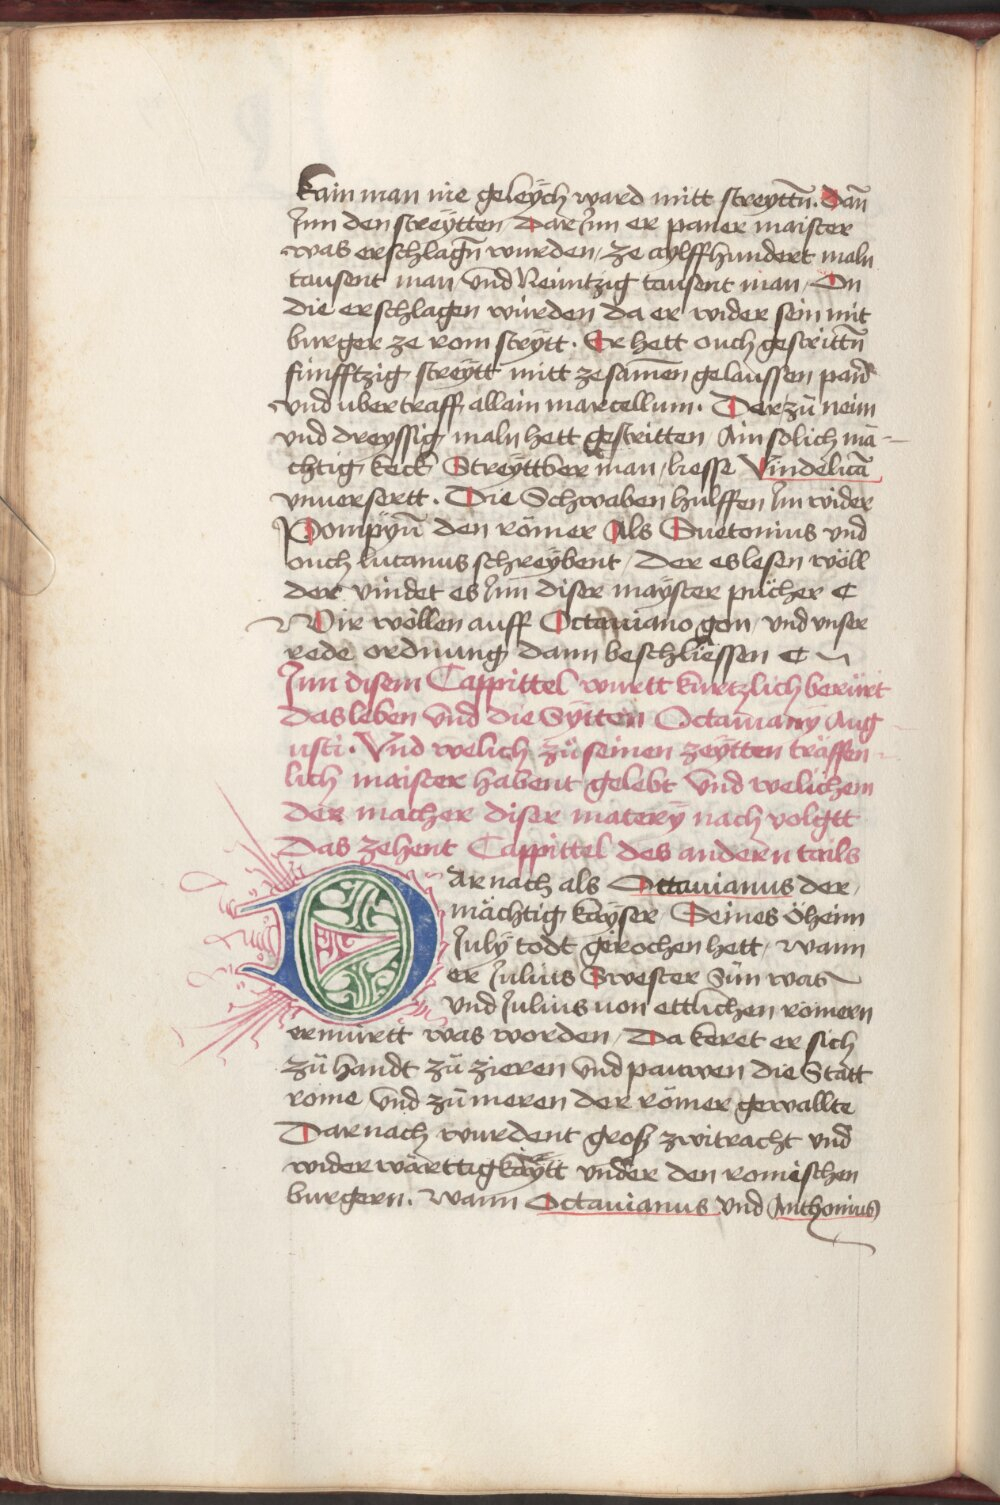 kain man nie geleÿch ward mitt streyttn̄. Dan̄
Jnn den streÿtten / Dar Jnn er paner maister
was erschlagn̄ wurden / ze aylff hundert maln
tausent man / vnd Neuntzig tausent man / On
die erschlagen wurden da er wider sein mit
burger ze rom strÿtt. Er hett ouch gestrittn̄
fünfftzig streÿtt mitt zesamen̄ gelaussen
vnd ubertraff allain marcellum. Der zů neün
vnd dreyssig maln hett gestritten / Ain sölich mä-
chtig keck Streyttber man / liesse Vindelicā
vnuersertt. Die Schwaben hulffen Jm wider
Pompÿum̄ den römer Als Suetonius vnd
ouch lucanus schreÿbent / Der es lesen wöll
der vindet es Jnn diser maÿster pücher
Wir wöllen auff Octauiano gon / vnd vnser
rede ordnung dann beschliessen
Jnn disem Cappittel wurtt kurtzlich berürt
das leben vnd die Sÿtten Octauianÿ Aug
usti. Vnd welich zů seinen zeÿtten träffen-
lich maister habent gelebt vnd welichem
der macher diser materÿ nach volgtt
Das zehent Cappittel des andern tails
Darnach als Octauianus der
mächtig kaÿser Seines öheim
Julÿ todt gerochen hett / wann
er Julius Swester Sun was
vnd Julius von ettlichen römern
ermürtt was worden / Da keret er sich
zů handt zů zieren vnd pauwen die Statt
rome vnd zů meren der römer gewallte
Darnach wurdent groß zwitracht vnd
widerwärttigkaÿtt vnder den romischen
burgern. wann Octauianus vnd Anthonius